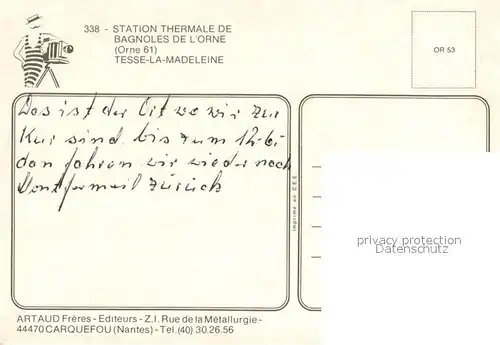 338 - STATION THERMALE DE
BAGNOLES DE L'ORNE
(Orne 61)
TESSE-LA-MADELEINE
OR 53
Das ist der Ort wo wir zur
Kur sind bis zum 12.6.
dan fahren wir wieder nach
Montfermeil zurück
Imprimé en C.E.E.
privacy protection
DATENSCHUTZ
ARTAUD Frères - Editeurs - Z.I. Rue de la Métallurgie -
44470 CARQUEFOU (Nantes) - Tel. (40) 30.26.56